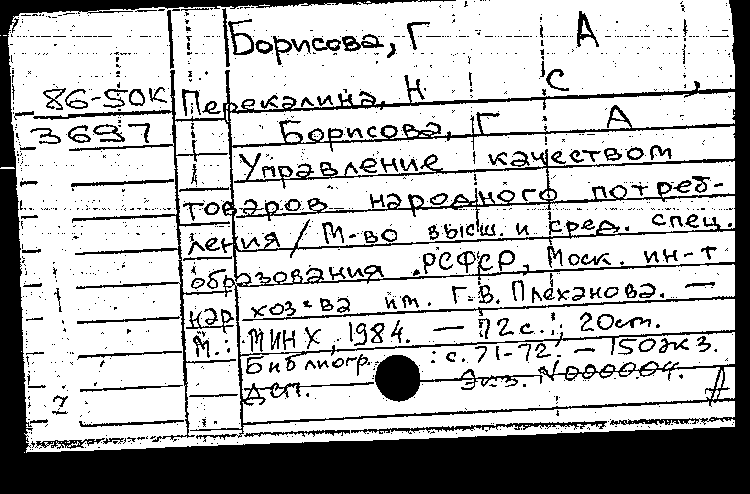 Борисова, Г А
86-50К Перекалина, Н С ,
3697 Борисова, Г А
Управление качеством
товаров народного потреб-
ления / М-во высш. и сред. спец.
образования РСФСР, Моск. ин-т
нар хоз-ва им. Г.В. Плеханова. —
М.: МИНХ, 1984. — 72 с. ; 20 см.
Библиогр. : с. 71-72. — 150 экз.
Деп. Экз. N000004.